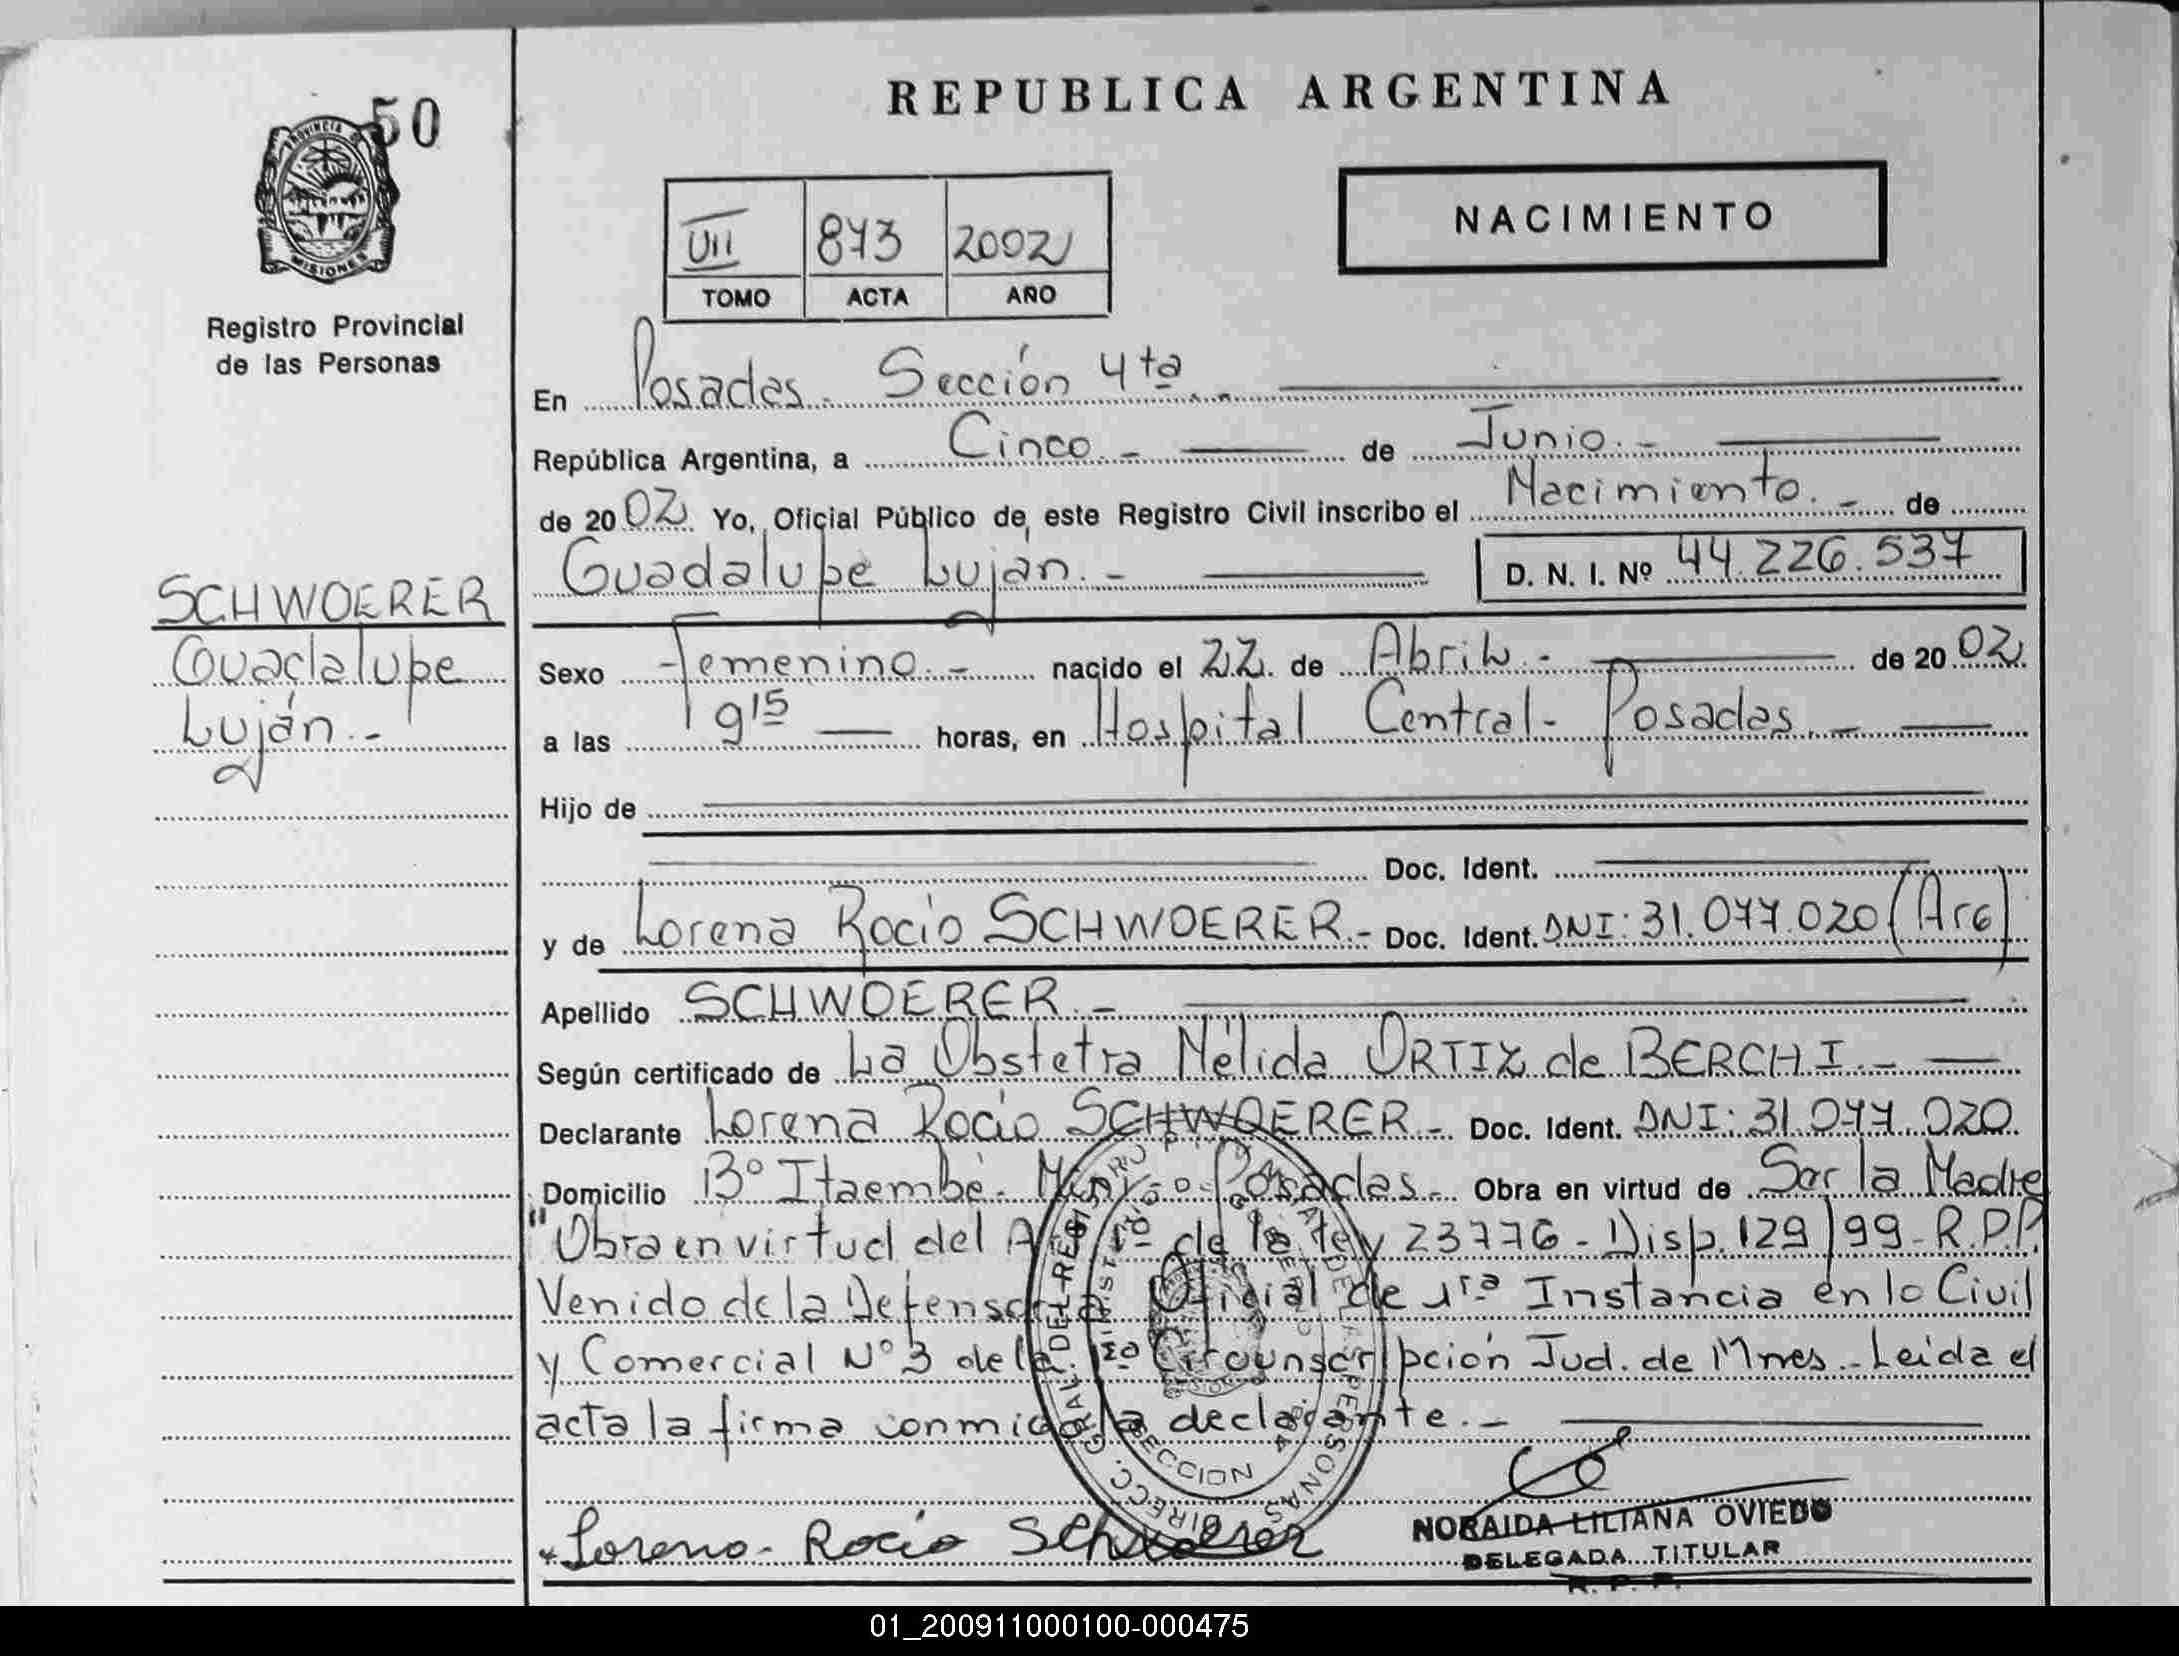 50
REPUBLICA ARGENTINA
PROVINCIA DE
MISIONES
Registro Provincial
de las Personas
VII 873 2002
TOMO ACTA AÑO
NACIMIENTO
En Posadas. Sección 4ta
República Argentina, a Cinco.- de Junio.-
de 2002 Yo, Oficial Público de este Registro Civil inscribo el Nacimiento.- de
Guadalupe Luján.- D. N. I. Nº 44.226.537
SCHWOERER
Guadalupe
Luján.-
Sexo Femenino.- nacido el 22 de Abril.- de 2002
a las 9 15 horas, en Hospital Central- Posadas.-
Hijo de
Doc. Ident.
y de Lorena Rocio SCHWOERER.- Doc. Ident. DNI: 31.077.020 (Arg)
Apellido SCHWOERER.-
Según certificado de La Obstetra Nélida ORTIZ de BERCHI.-
Declarante Lorena Rocio SCHWOERER.- Doc. Ident. DNI: 31.077.020
Domicilio Bº Itaembé- Posadas.- Obra en virtud de Ser la Madre
"Obra en virtud del de la ley 23776- Disp. 129/99- R.P.P.
Venido de la Defensoria Oficial de 1ra Instancia en lo Civil
y Comercial Nº 3 de la 1ra Circunscripción Jud. de Mnes.- Leida el
acta la firma conmigo la declarante.-
DIRECC. GRAL. DEL REGISTRO PERSONAS
SECCION 4a
Lorena Rocio Schwoerer
NORAIDA LILIANA OVIEDO
DELEGADA TITULAR
R. P. P.
01_200911000100-000475